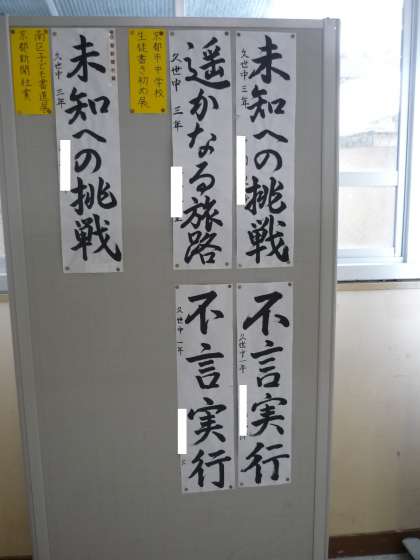 未知への挑戦
久世中 三年
遥かなる旅路
久世中 三年
不言実行
久世中 一年
不言実行
久世中 一年
京都市中学校
生徒書き初め展
未知への挑戦
久世中 三年
南区子ども書道展
京都新聞社賞